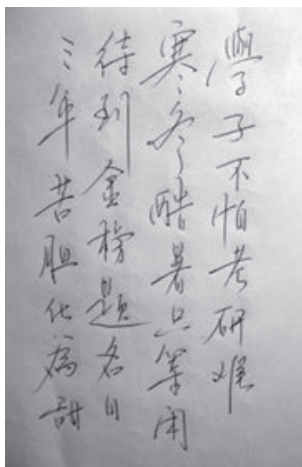 學子不怕考研难
寒冬酷暑只等闲
待到金榜题名日
三年苦胆化為甜